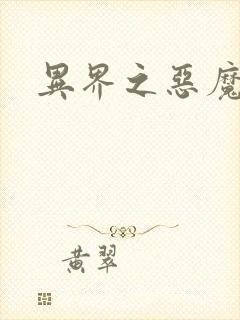 異界之惡魔
黃翠